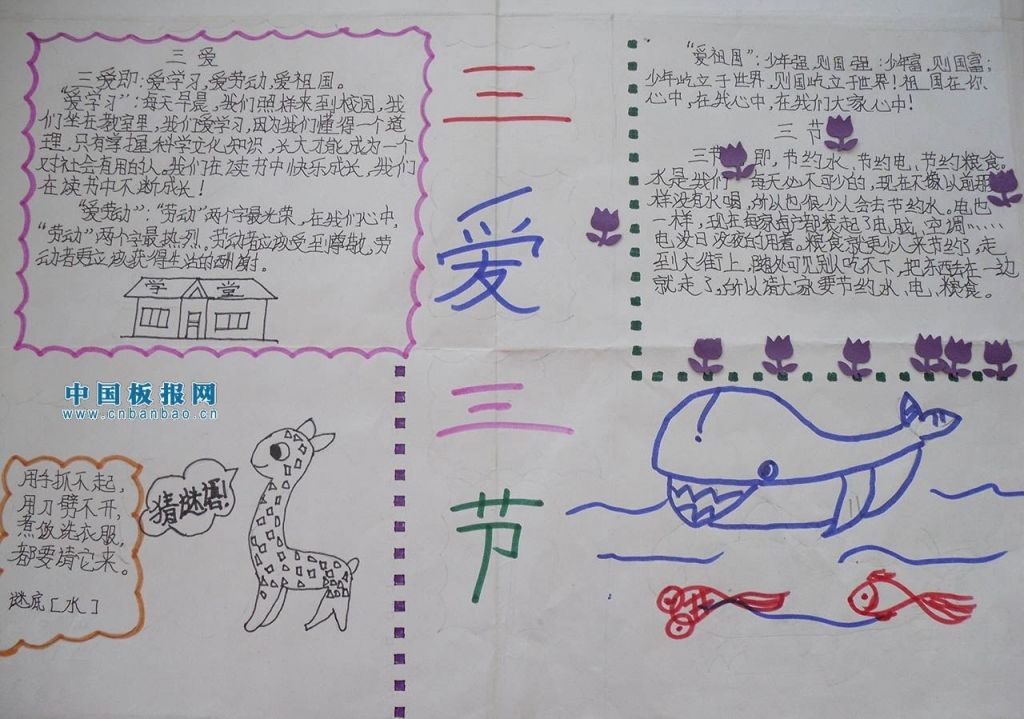 三 爱
三爱即:爱学习,爱劳动,爱祖国。
"爱学习":每天早晨,我们照样来到校园,我
们坐在教室里,我们爱学习,因为我们懂得一个道
理,只有掌握科学文化知识,长大才能成为一个
对社会有用的人。我们在读书中快乐成长,我们
在读书中不断成长!
"爱劳动":"劳动"两个字最光荣,在我们心中,
"劳动"两个字最热烈。劳动者应该受到尊敬,劳
动者更应该获得生活的酬谢。
学 堂
三
爱
三
节
"爱祖国":少年强,则国强;少年富,则国富;
少年屹立于世界,则国屹立于世界!祖国在你
心中,在我心中,在我们大家心中!
三节
三节 即,节约水、节约电、节约粮食。
水是我们 每天必不可少的,现在不像以前那
样没有水喝,所以也很少人会去节约水。电也
一样,现在每家每户都装起了电脑,空调……
电没日没夜的用着。粮食就更少人来节约了,走
到大街上,随处可见别人吃不下,把东西丢在一边
就走了,所以请大家要节约水、电、粮食。
中国板报网
www.cnbanbao.cn
用手抓不起,
用刀劈不开,
煮饭洗衣服,
都要请它来。
谜底[水]
猜谜语!